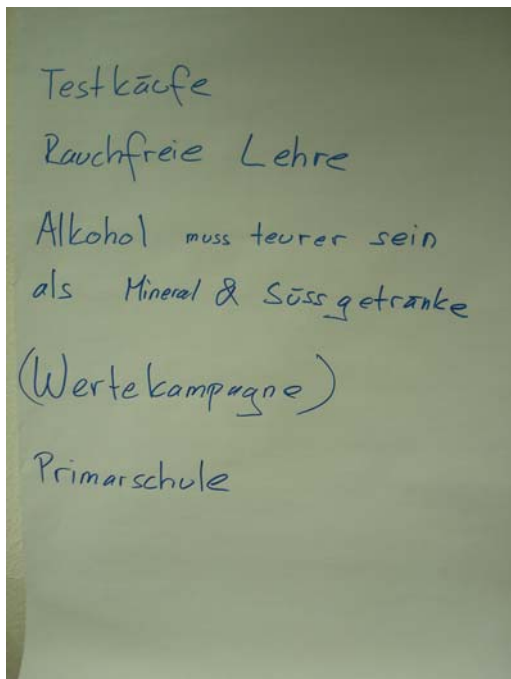 Testkäufe
Rauchfreie Lehre
Alkohol muss teurer sein
als Mineral & Süssgetränke
(Wertekampagne)
Primarschule